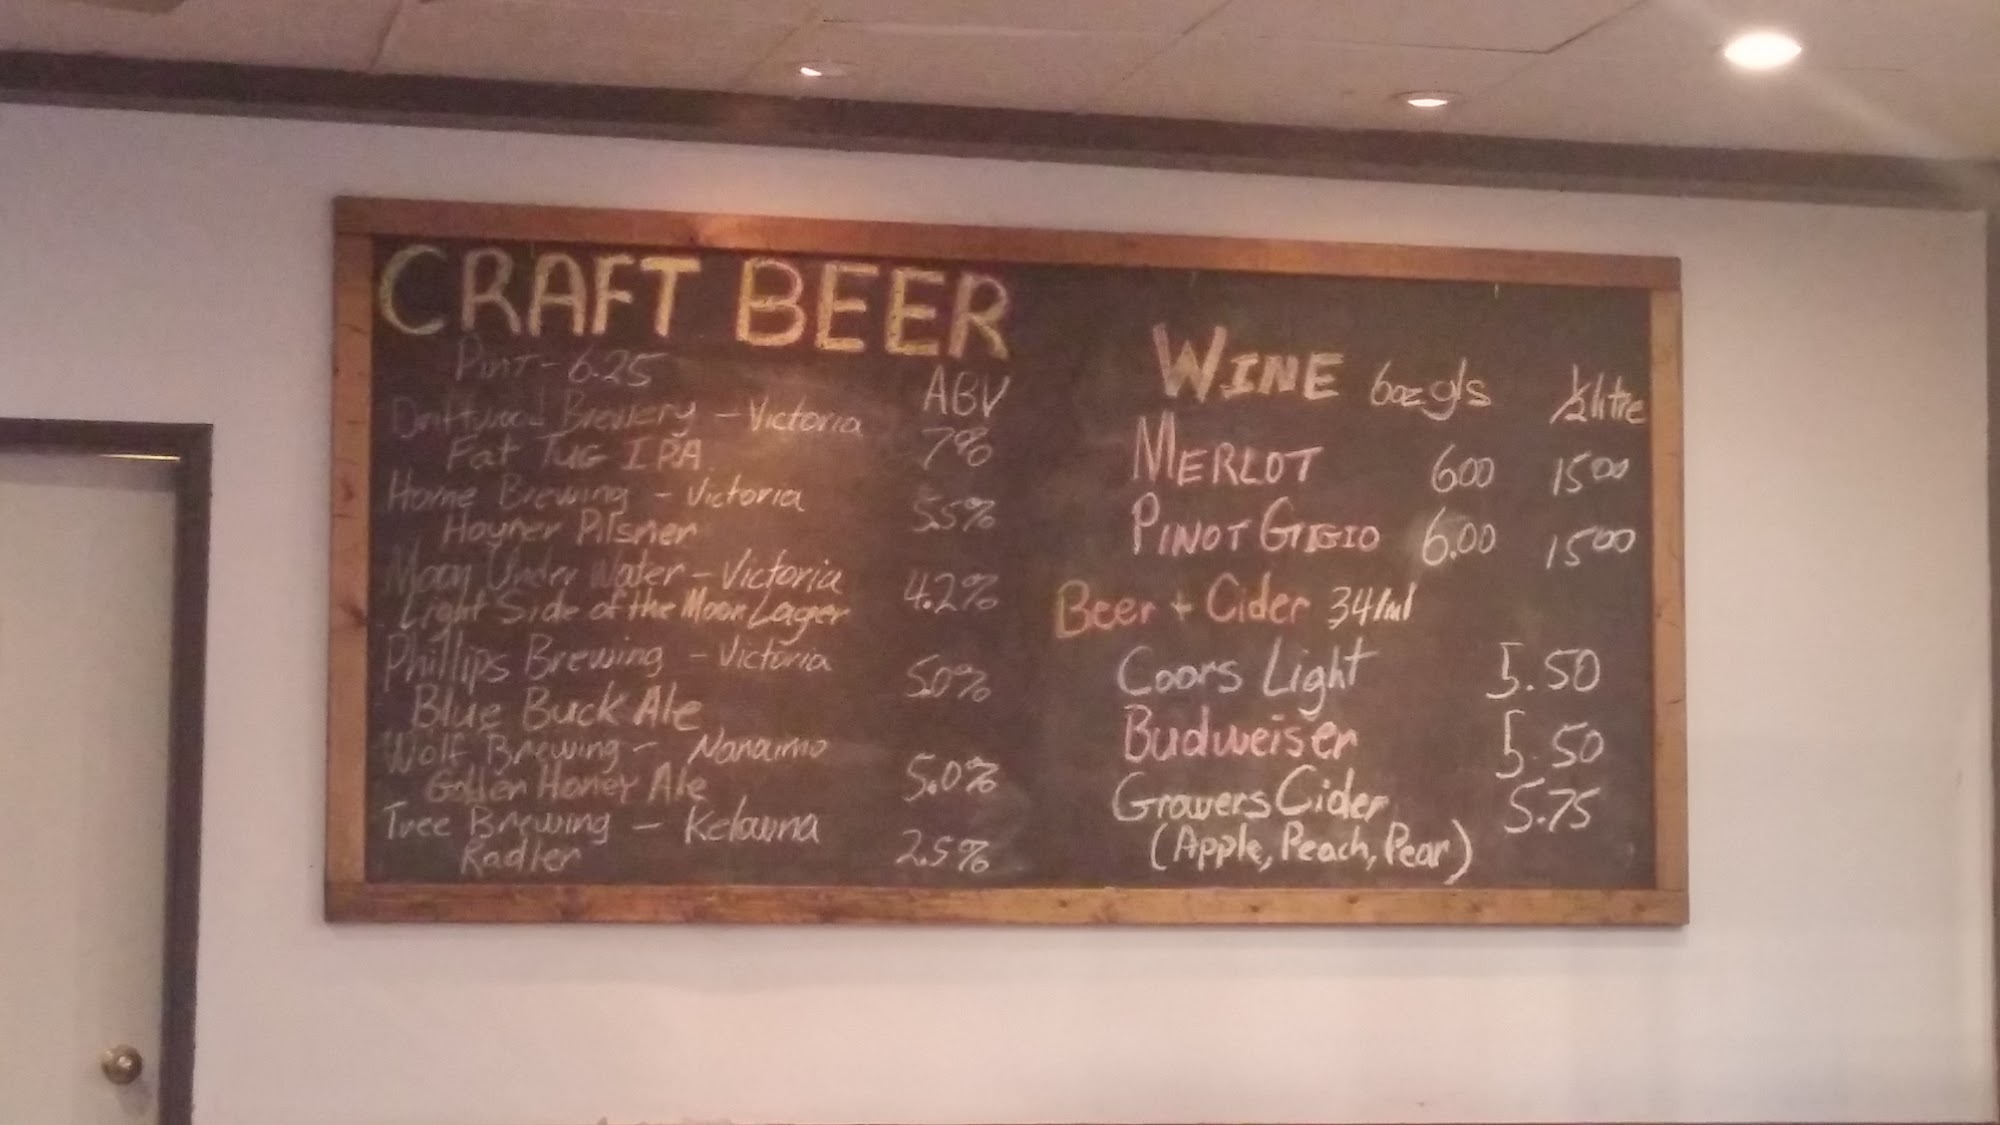 CRAFT BEER
PINT - 6.25
ABV
Driftwood Brewery - Victoria
Fat TUG IPA 7%
Horne Brewing - Victoria
Hoyner Pilsner 5.5%
Moon Under Water - Victoria
Light Side of the Moon Lager 4.2%
Phillips Brewing - Victoria
Blue Buck Ale 5.0%
Wolf Brewing - Nanaimo
Golden Honey Ale 5.0%
Tree Brewing - Kelowna
Radler 2.5%
WINE 6oz gls 1/2 litre
MERLOT 600 1500
PINOT GIGIO 6.00 1500
Beer + Cider 341ml
Coors Light 5.50
Budweiser 5.50
Growers Cider 5.75
(Apple, Peach, Pear)